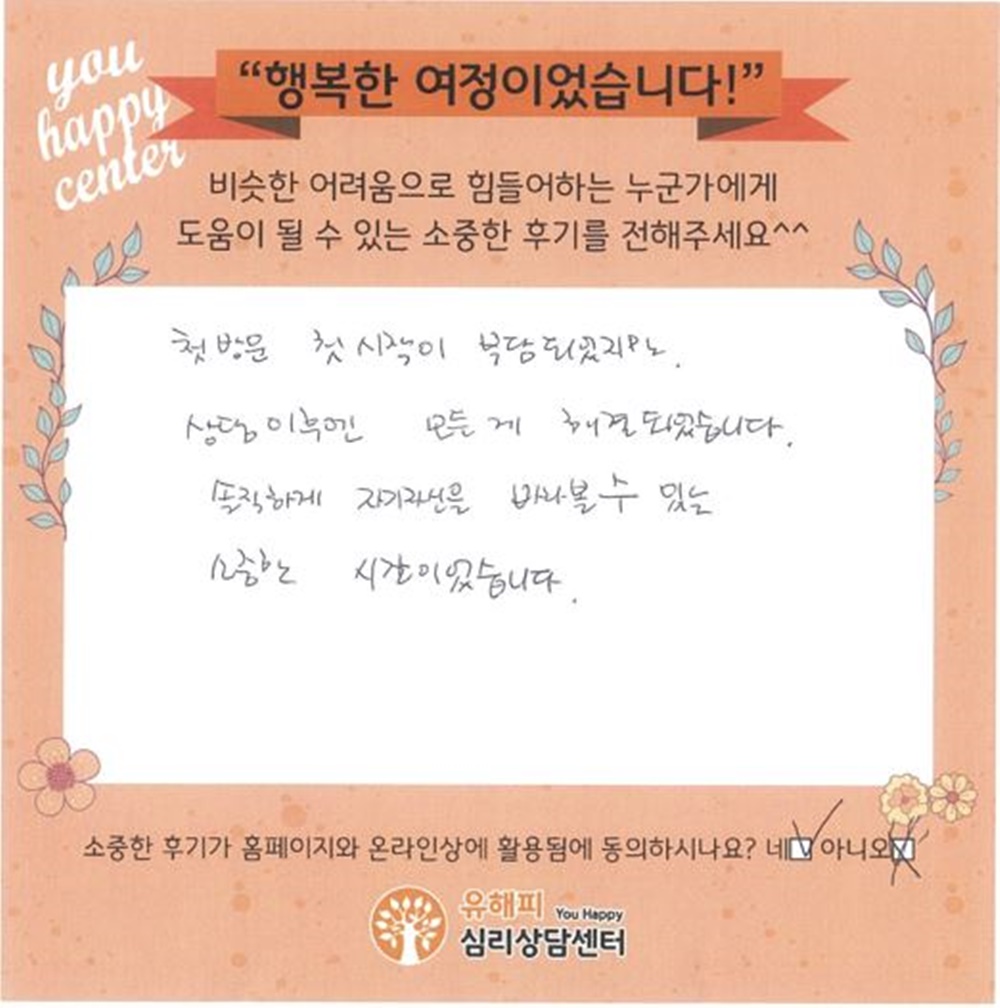 you
happy
center
“행복한 여정이었습니다!”
비슷한 어려움으로 힘들어하는 누군가에게
도움이 될 수 있는 소중한 후기를 전해주세요^^
첫방문 첫 시작이 부담되었지만.
상담이후엔 모든게 해결되었습니다.
솔직하게 자기자신을 바라볼 수 있는
소중한 시간이었습니다.
소중한 후기가 홈페이지와 온라인상에 활용됨에 동의하시나요? 네☑ 아니오☑
유해피 You Happy
심리상담센터